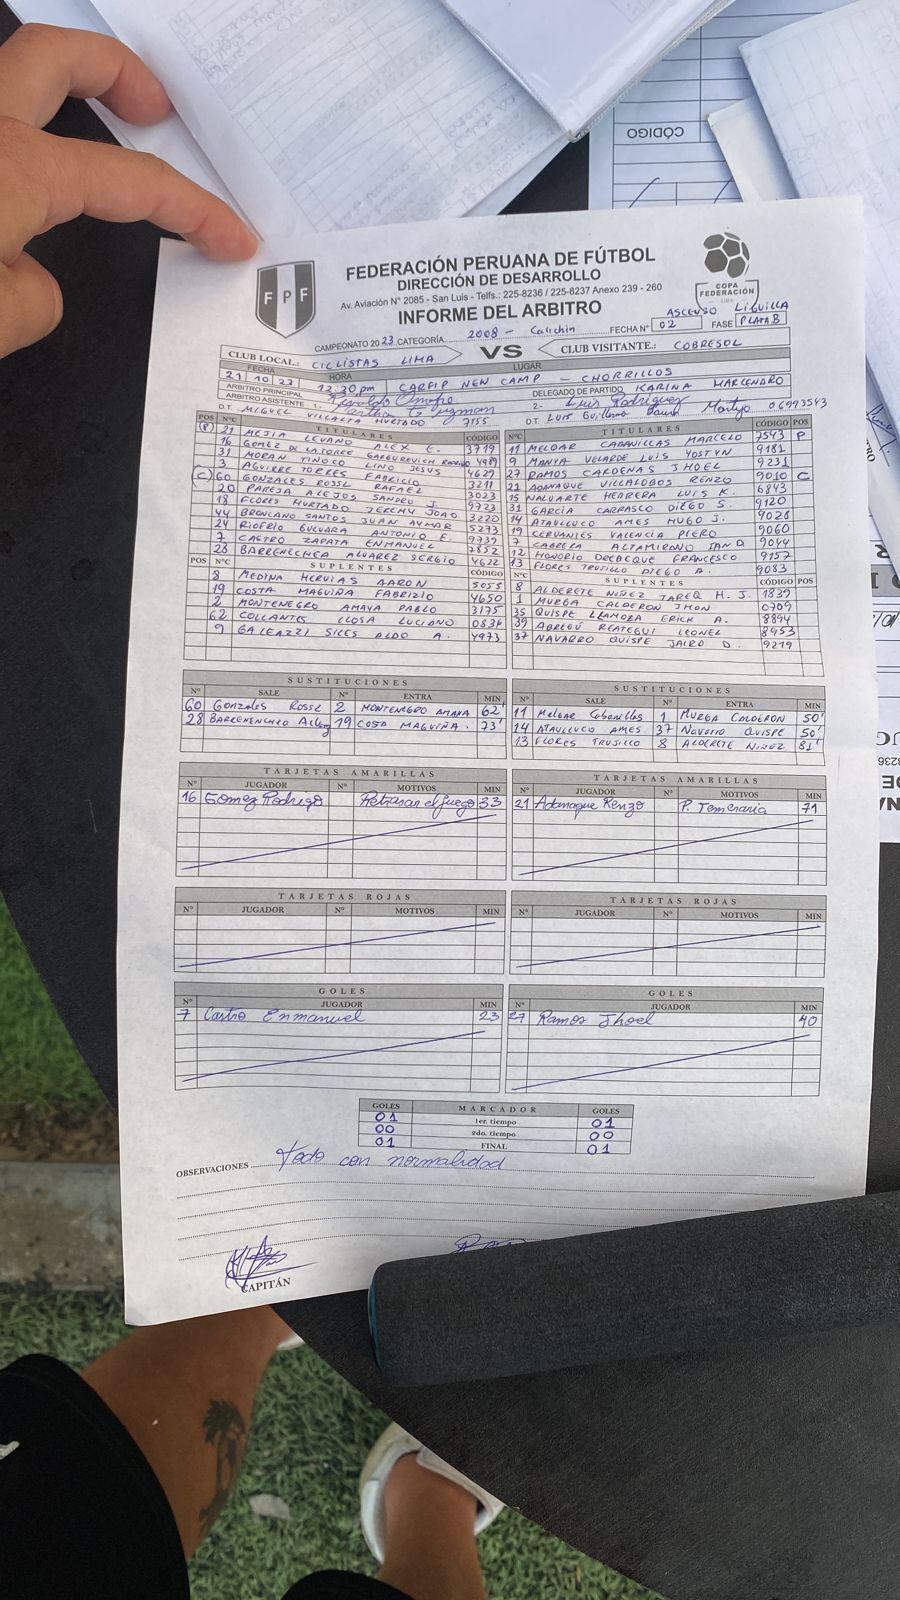 CÓDIGO
FPF
FEDERACIÓN PERUANA DE FÚTBOL
DIRECCIÓN DE DESARROLLO
Av. Aviación N° 2085 - San Luis - Telfs.: 225-8236 / 225-8237 Anexo 239 - 260
INFORME DEL ARBITRO
COPA FEDERACIÓN
ASCENSO LIGUILLA
CAMPEONATO 2023 CATEGORÍA 2008 - Calichin FECHA N° 02 FASE PLATA B
CLUB LOCAL.: CICLISTAS LIMA VS CLUB VISITANTE.: COBRESOL
FECHA HORA LUGAR
21 10 23 12:30 pm CARFIP NEW CAMP - CHORRILLOS
ARBITRO PRINCIPAL DELEGADO DE PARTIDO KARINA MARCENARO
ARBITRO ASISTENTE 1.- 2.- Luis Rodríguez
D.T. MIGUEL VILLALTA HURTADO 7155 D.T. LUIS Guillermo 06993543
POS N°C TITULARES CÓDIGO N°C TITULARES CÓDIGO POS
(P) 21 MEJIA LEVANO ALEX E. 3719 11 MELGAR CABANILLAS MARCELO 7543 P
16 GOMEZ DE LA TORRE GARGUREVICH RODRIGO 4989 9 MANYA VELARDE LUIS YOSTYN 9181
31 MORAN TINOCO LINO JESUS 4629 27 RAMOS CARDENAS JHOEL 9231
3 AGUIRRE TORRES FABRICIO 3211 21 ADANAQUE VILLALOBOS RENZO 9010 C
(C) 60 GONZALES ROSSL RAFAEL 3023 15 NALVARTE HERRERA LUIS K. 6843
20 PAREJA ACEJOS SANDRO J. 9723 31 GARCIA CARRASCO DIEGO S. 9120
18 FLORES HURTADO JEREMY JOAO 3220 14 ATAULLUCO AMES HUGO J. 9028
44 BRONCANO SANTOS JUAN AYMAR 5293 19 CERVANTES VALENCIA PIERO 9060
24 RIOFRIO GUEVARA ANTONIO E. 9739 7 CABRERA ALTAMIRANO IAN D 9044
7 CASTRO ZAPATA ENMANUEL 7852 12 HONORIO DECBEQUE FRANCESCO 9157
28 BARRENECHEA ALVAREZ SERGIO 4622 13 FLORES TRUJILLO DIEGO A. 9083
POS N°C SUPLENTES CÓDIGO N°C SUPLENTES CÓDIGO POS
8 MEDINA HERVIAS AARON 5055 8 ALDERETE NIÑEZ TAREQ H. J. 1839
19 COSTA MAGUIÑA FABRIZIO 4650 1 MURGA CALDERON JHON 0709
2 MONTENEGRO AMAYA PABLO 3175 35 QUISPE LLAMORA ERICH A. 8894
62 COLLANTES LLOSA LUCIANO 0834 39 ABREGÚ REATEGUI LEONEL 8953
9 GALEAZZI SILES ALDO A. 4973 37 NAVARRO QUISPE JAIRO D. 9219
SUSTITUCIONES SUSTITUCIONES
N° SALE N° ENTRA MIN N° SALE N° ENTRA MIN
60 Gonzales Rossl 2 MONTENEGRO AMAYA 62' 11 Melgar Cabanillas 1 MURGA CALDERON 50'
28 BARRENENCHEO 19 COSTA MAGUIÑA. 73' 14 ATAULLUCO AMES 37 Navarro QUISPE 50'
13 FLORES TRUJILLO 8 ALDERETE NIÑEZ 81'
TARJETAS AMARILLAS TARJETAS AMARILLAS
N° JUGADOR N° MOTIVOS MIN N° JUGADOR N° MOTIVOS MIN
16 Gomez Rodrigo Retrasar el juego 33 21 Adanaque Renzo P. Temeraria 71
TARJETAS ROJAS TARJETAS ROJAS
N° JUGADOR N° MOTIVOS MIN N° JUGADOR N° MOTIVOS MIN
GOLES GOLES
N° JUGADOR MIN N° JUGADOR MIN
7 Castro Enmanuel 23 27 Ramos Jhoel 40
GOLES MARCADOR GOLES
01 1er. tiempo 01
00 2do. tiempo 00
01 FINAL 01
OBSERVACIONES Todo con normalidad
CAPITÁN